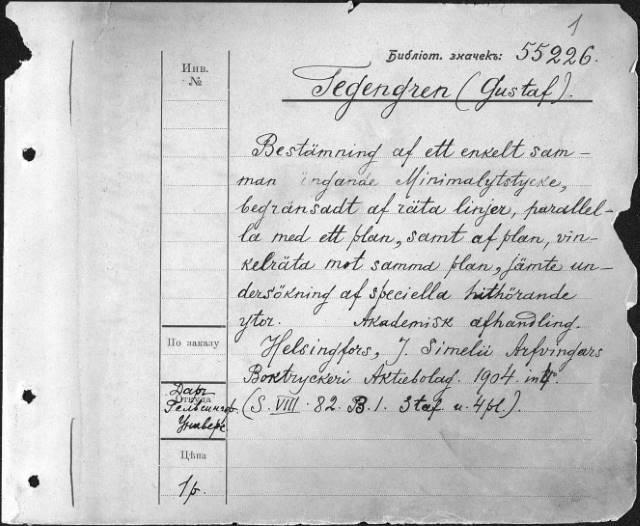 1
Библіот. значекъ: 55226.
Инв.
№
Tegengren (Gustaf).
Bestämning af ett enkelt sam-
man ingande Minimalytstycke,
begränsadt af räta linjer, parallel-
la med ett plan, samt af plan, vin-
kelräta mot samma plan, jämte un-
dersökning af speciella hithörande
ytor. Akademisk afhandling.
Helsingfors, J. Simelii Arfvingars
Boktryckeri Aktiebolag. 1904. in 4°.
(S. VIII. 82. B. 1. 3 taf. u. 4 pl.).
По заказу
Даръ
Откуда
Гельсингф.
Универ.
Цѣна
1 р.